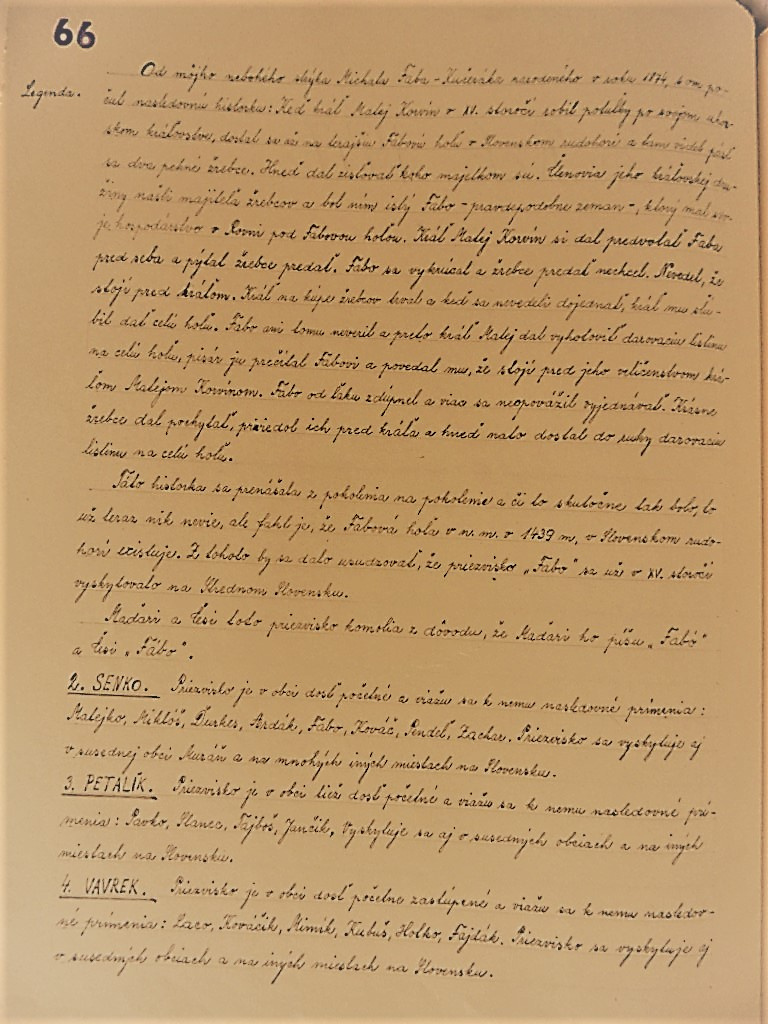 66
Od môjho nebohého strýka Michala Faba-Kučeráka narodeného v roku 1874, som po-
Legenda.
čul nasledovnú historku: Keď kráľ Matej Korvín v XV. storočí robil potulky po svojom uhor-
skom kráľovstve, dostal sa až na terajšiu Fabovú hoľu v Slovenskom rudohorí a tam videl pásť
sa dva pekné žrebce. Hneď dal zisťovať koho majetkom sú. Členovia jeho kráľovskej dru-
žiny našli majiteľa žrebcov a bol ním istý Fabo - pravdepodobne zeman -, ktorý mal svo-
je hospodárstvo v Rovni pod Fabovou hoľou. Kráľ Matej Korvín si dal predvolať Faba
pred seba a pýtal žrebce predať. Fabo sa vykrúcal a žrebce predať nechcel. Nevedel, že
stojí pred kráľom. Kráľ na kúpe žrebcov trval a keď sa nevedeli dojednať, kráľ mu sľú-
bil dať celú hoľu. Fabo ani tomu neveril a preto kráľ Matej dal vyhotoviť darovaciu listinu
na celú hoľu, pisár ju prečítal Fabovi a povedal mu, že stojí pred jeho veličenstvom krá-
ľom Matejom Korvínom. Fabo od ľaku zdúpnel a viac sa neopovážil vyjednávať. Krásne
žrebce dal pochytať, priviedol ich pred kráľa a hneď nato dostal do ruky darovaciu
listinu na celú hoľu.
Táto historka sa prenášala z pokolenia na pokolenie a či to skutočne tak bolo, to
už teraz nik nevie, ale fakt je, že Fabová hoľa v n. m. v. 1439 m, v Slovenskom rudo-
horí existuje. Z tohoto by sa dalo usudzovať, že priezvisko „Fabo" sa už v XV. storočí
vyskytovalo na Strednom Slovensku.
Maďari a Česi toto priezvisko komolia z dôvodu, že Maďari ho píšu „Fabó"
a Česi „Fábo".
2. SENKO. Priezvisko je v obci dosť početné a viažu sa k nemu nasledovné prímenia:
Matejko, Mikloš, Ďurkes, Ardák, Fábo, Kováč, Pendel, Zachar. Priezvisko sa vyskytuje aj
v susednej obci Muráň a na mnohých iných miestach na Slovensku.
3. PETALÍK. Priezvisko je v obci tiež dosť početné a viažu sa k nemu nasledovné prí-
menia: Pavko, Slanca, Tajboš, Jančík, Vyskytuje sa aj v susedných obciach a na iných
miestach na Slovensku.
4. VAVREK. Priezvisko je v obci dosť početne zastúpené a viažu sa k nemu nasledov-
né prímenia: Laco, Kováčik, Mimik, Kubuš, Holko, Fajdák. Priezvisko sa vyskytuje aj
v susedných obciach a na iných miestach na Slovensku.